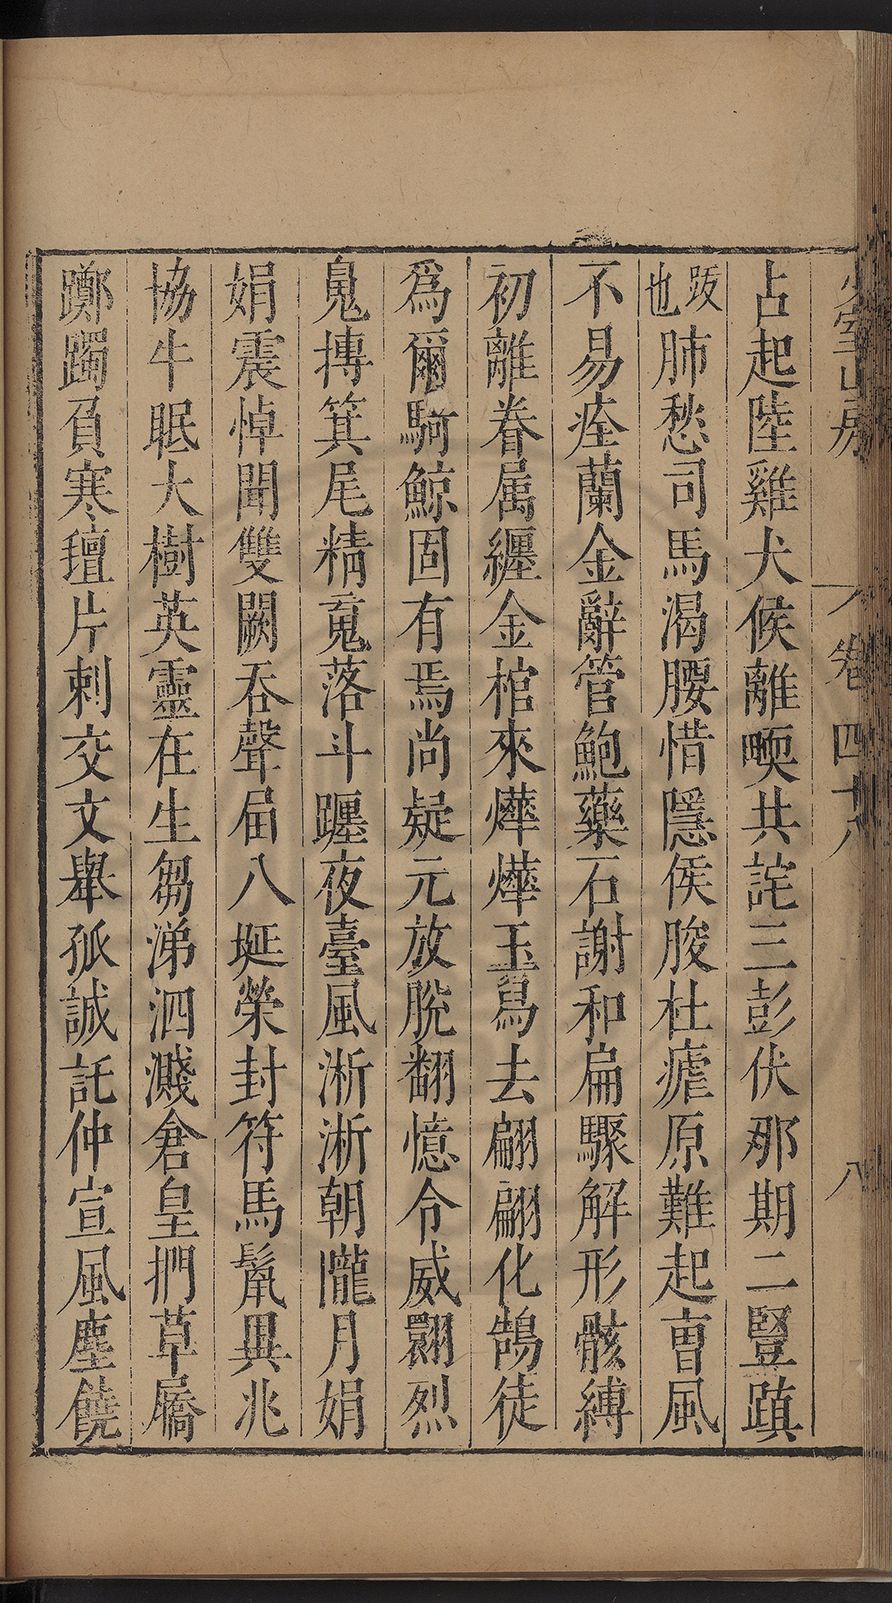 少室山房 卷四十八 八
占起陸雞犬候離㖭共詫三彭伏那期二豎蹎
跋也肺愁司馬渴腰惜隱侯朘杜瘧原難起曺風
不易痊蘭金辭管鮑藥石謝和扁驟解形骸縛
初離眷属纏金棺來燁燁玉舄去翩翩化鵠徒
為爾騎鯨固有焉尚疑元放脫翻憶令威翾烈
鬼摶箕尾精䰟落斗躔夜臺風淅淅朝隴月娟
娟震悼聞雙闕吞聲届八埏榮封符馬鬣異兆
協牛眠大樹英靈在生芻涕泗濺倉皇捫草屩
躑躅負寒氊片刺交文舉孤誠託仲宣風塵饒